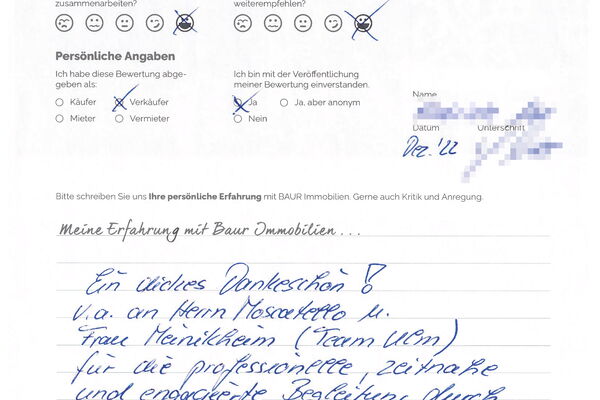 zusammenarbeiten?
weiterempfehlen?
Persönliche Angaben
Ich habe diese Bewertung abge-
geben als:
Ich bin mit der Veröffentlichung
meiner Bewertung einverstanden.
Käufer Verkäufer
Ja Ja, aber anonym
Mieter Vermieter
Nein
Name
Datum Unterschrift
Dez. '22
Bitte schreiben Sie uns Ihre persönliche Erfahrung mit BAUR Immobilien. Gerne auch Kritik und Anregung.
Meine Erfahrung mit Baur Immobilien...
Ein dickes Dankeschön!
v.a. an Herrn Moscatello u.
Frau (Team Ulm)
für die professionelle, zeitnahe
und engagierte Begleitung durch